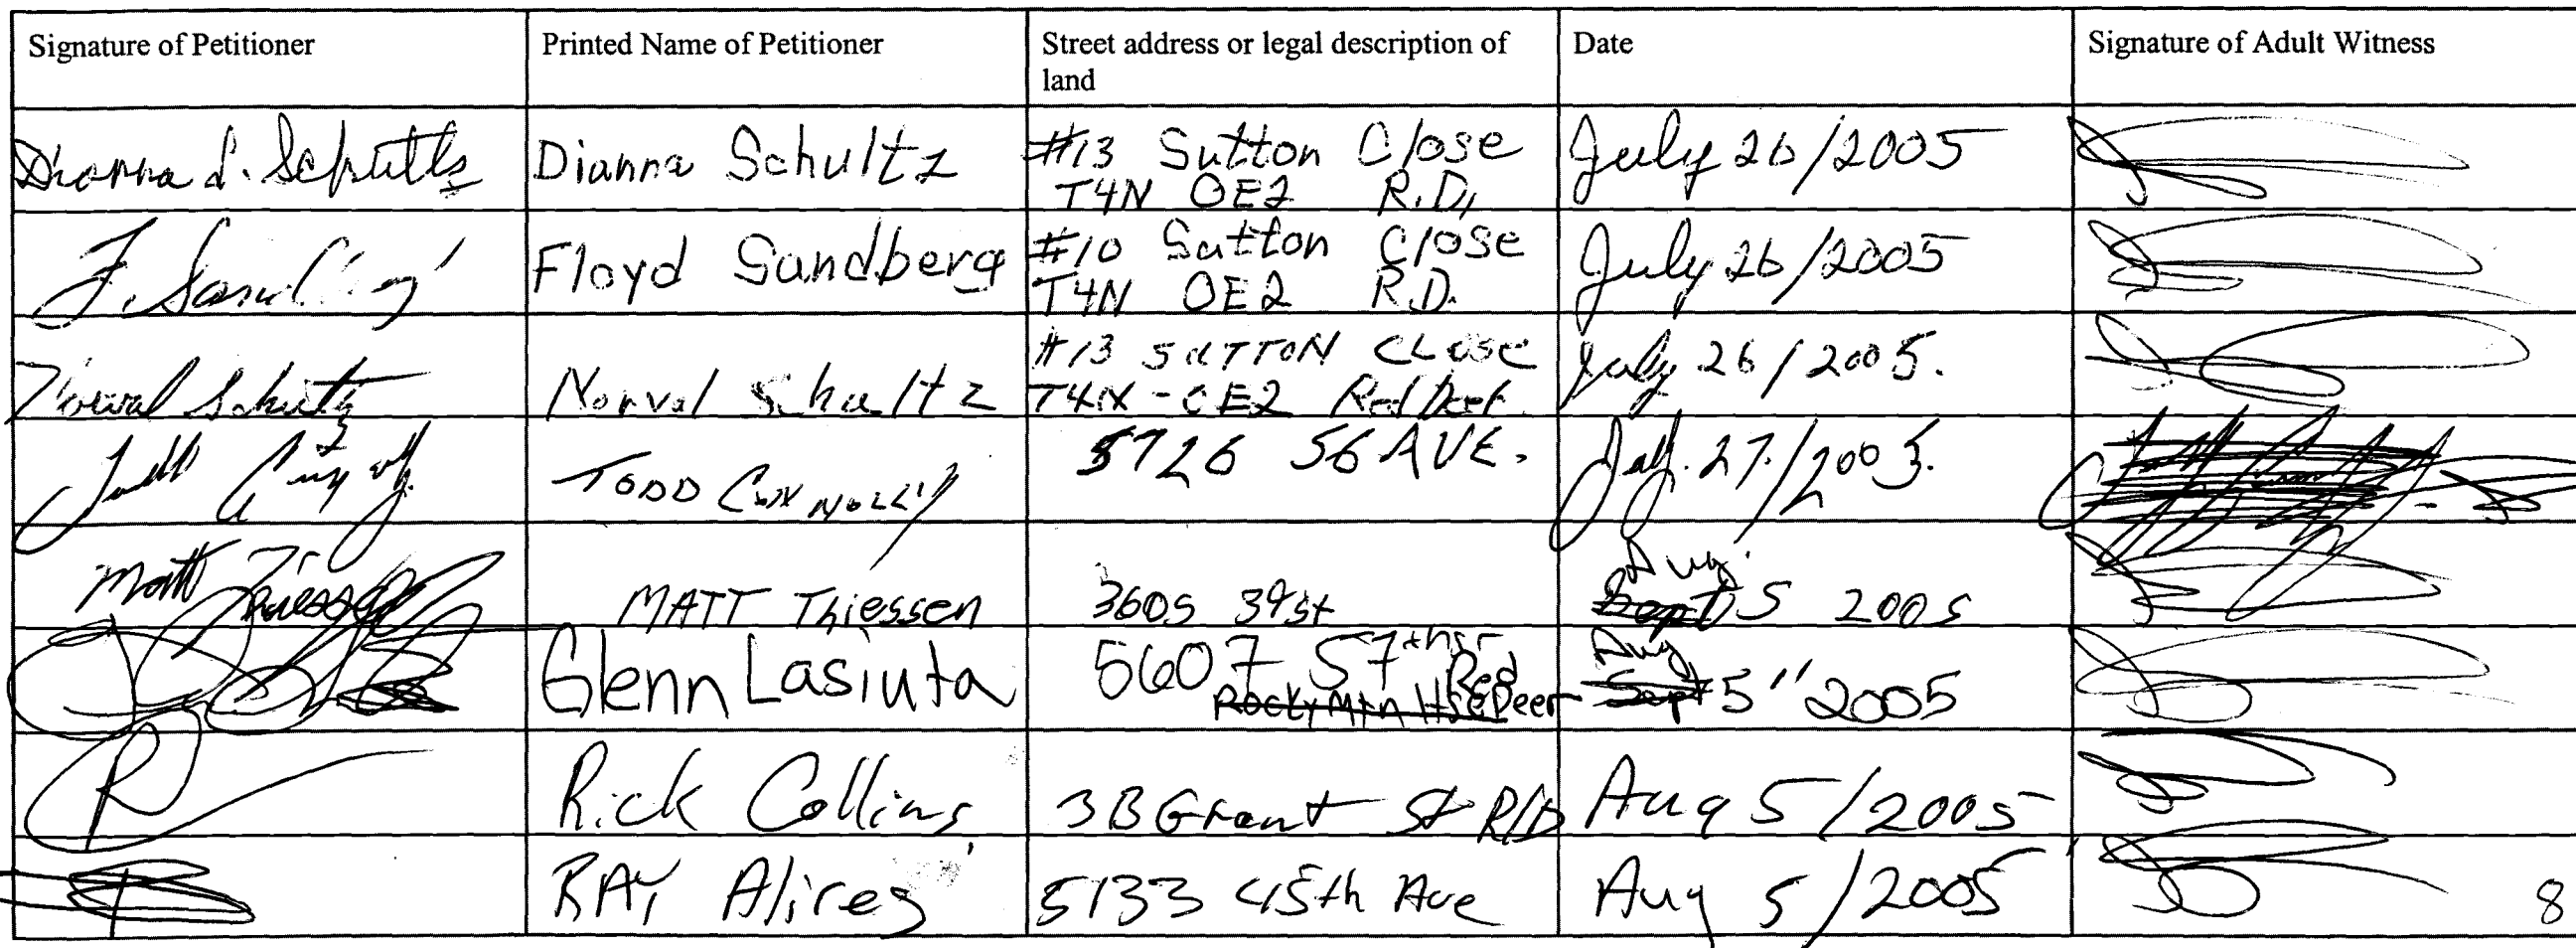 Signature of Petitioner
Printed Name of Petitioner
Street address or legal description of
land
Date
Signature of Adult Witness
Dianna S. Schultz
Dianna Schultz
#13 Sutton Close
T4N 0E2 R.D,
July 26/2005
F. Sandberg
Floyd Sandberg
#10 Sutton Close
T4N 0E2 R.D.
July 26/2005
Norval Schultz
Norval Schultz
#13 SUTTON CLOSE
T4N-0E2 Red Deer
July 26/2005.
TODD CONNOLLY
5726 56 AVE.
July. 27./2005.
Matt Thiessen
MATT Thiessen
3605 39 st
Aug
Sept 5 2005
Glenn Lasiuta
5607 57th st Red
Rocky Mtn HSE Deer
Aug
Sept 5" 2005
Rick Collins
3B Grant St R/D
Aug 5/2005
RAY Alires
5133 45th Ave
Aug 5/2005
8